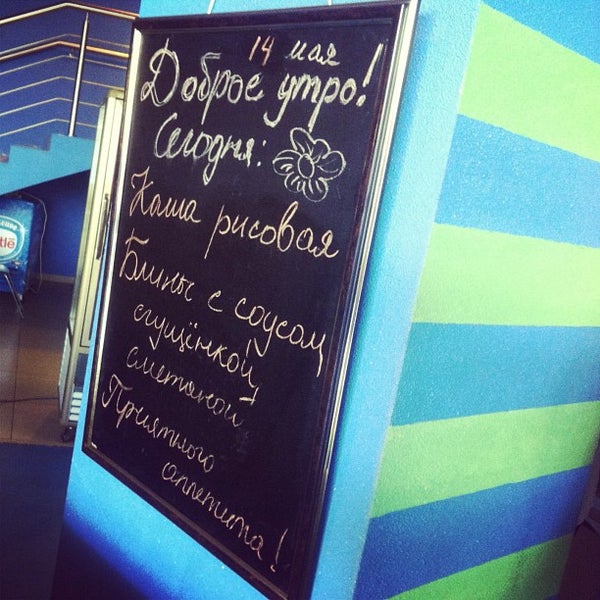 14 мая
Доброе утро!
Сегодня:
Каша рисовая
Блины с соусом
сгущёнкой
сметаной
Приятного
аппетита!